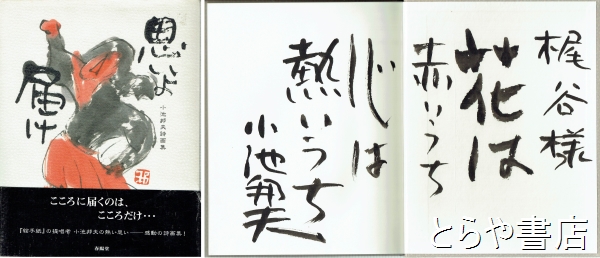 思いよ
届け
小池邦夫詩画集
邦
こころに届くのは、
こころだけ…
『絵手紙』の提唱者 小池邦夫の熱い思い――感動の詩画集!
春陽堂
梶谷様
花は
赤いうち
心は
熱いうち
小池邦夫
とらや書店